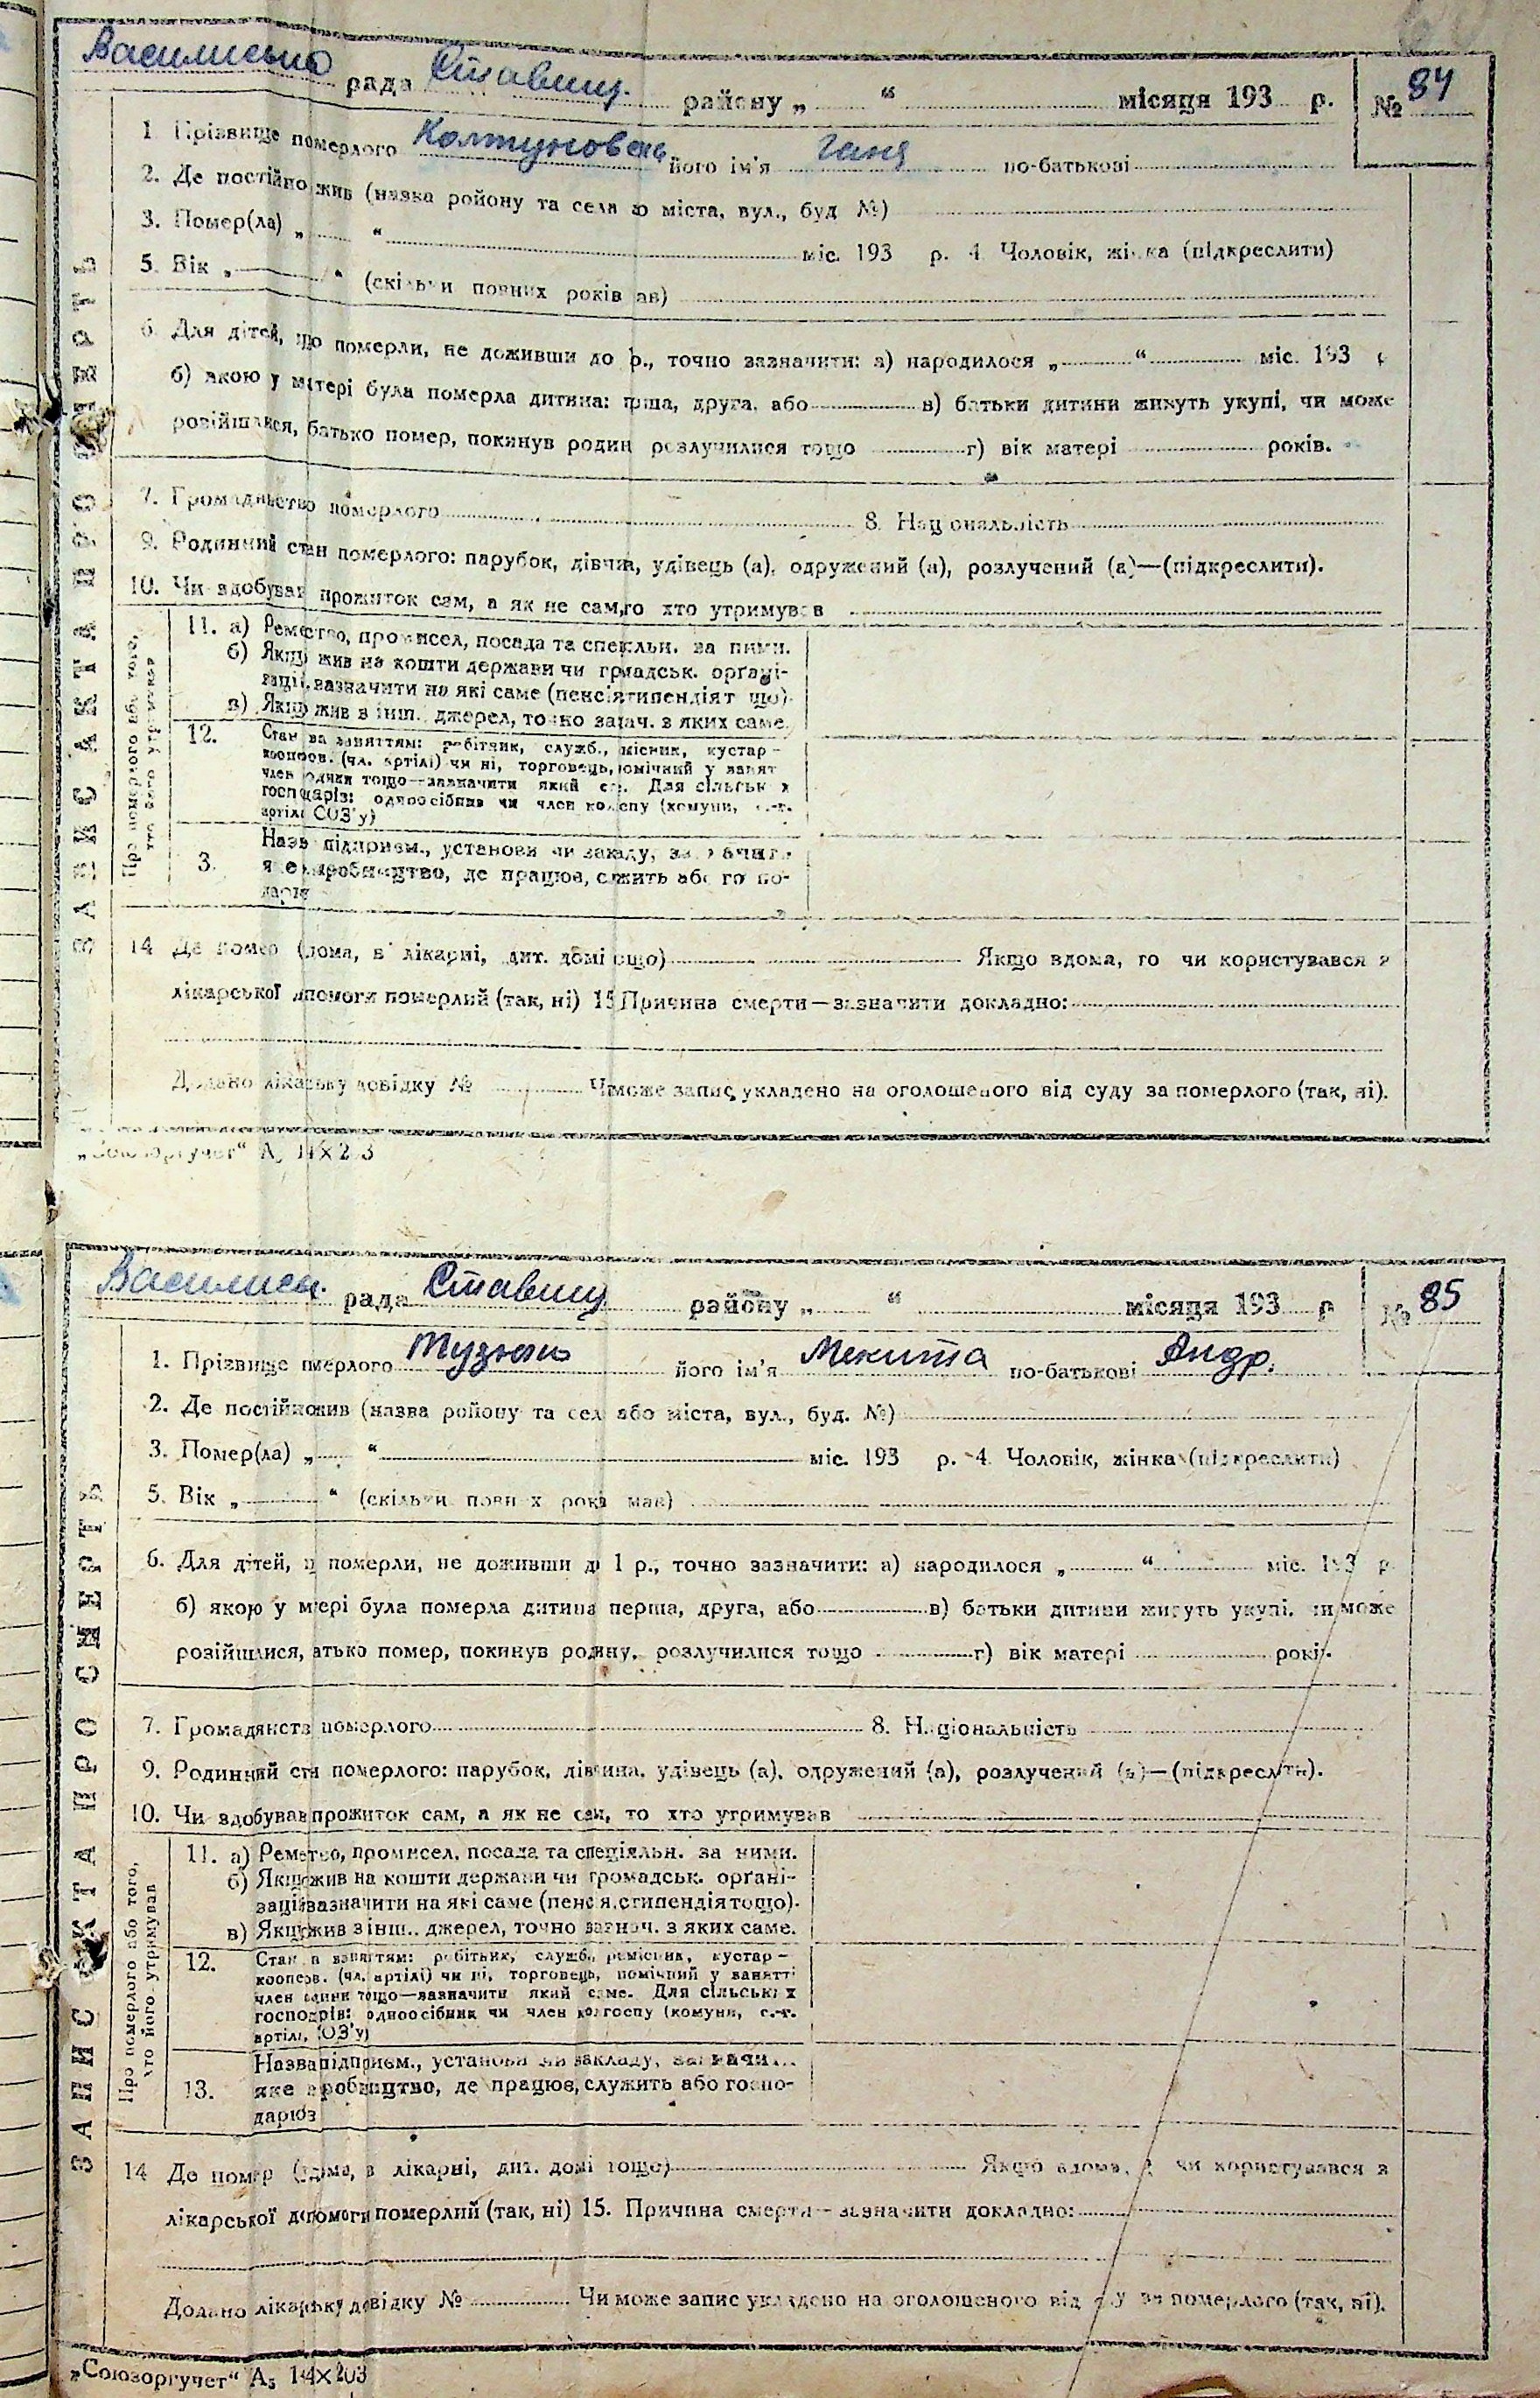 рада Ставищ. району „ “ місяця 193 р. № 84
1 Прізвище померлого його ім'я Ганя по-батькові
2. Де постійно жив (назва району та села або міста, вул., буд №)
3. Помер(ла) „ “ міс. 193 р. 4 Чоловік, жінка (підкреслити)
5. Вік „ “ (скільки повних років мав)
6. Для дітей, що померли, не доживши до р., точно зазначити: а) народилося „ “ міс. 193 р
б) якою у матері була померла дитина: перша, друга, або в) батьки дитини живуть укупі, чи може
розійшлися, батько помер, покинув родину розлучилися тощо г) вік матері років.
7. Громадянство померлого 8. Національність
9. Родинний стан померлого: парубок, дівчина, удівець (а), одружений (а), розлучений (а)—(підкреслити).
10. Чи здобував прожиток сам, а як не сам, то хто утримував
ЗАПИС АКТА ПРО СМЕРТЬ
Про померлого або того,
хто його утримував
11. а) Ремество, промисел, посада та спеціяльн. за ними.
б) Якщо жив на кошти держави чи громадськ. органі-
зації, зазначити на які саме (пенсія, стипендія тощо).
в) Якщо жив з інш. джерел, точно зазнач. з яких саме.
12. Стан за заняттям: робітник, служб., ремісник, кустар –
кооперов. (чл. артілі) чи ні, торговець, помічний у занят
член родини тощо—зазначити який саме. Для сільських
господарів: одноосібник чи член колгоспу (комуни, с.-г.
артілі СОЗ'у)
3. Назва підприєм., установи чи закладу, зазначити
яке виробництво, де працює, служить або госпо-
дарює
14 Де помер (дома, в лікарні, дит. домі тощо) Якщо вдома, то чи користувався з
лікарської допомоги померлий (так, ні) 15 Причина смерти—зазначити докладно:
Додано лікарську довідку № Чи може запис укладено на оголошеного від суду за померлого (так, ні).
„Союзоргучет“ А5 14×203
Васились. рада Ставищ району „ “ місяця 193 р № 85
1. Прізвище померлого його ім'я Мекита по-батькові Андр.
2. Де постійно жив (назва району та села або міста, вул., буд. №)
3. Помер(ла) „ “ міс. 193 р. 4 Чоловік, жінка (підкреслити)
5. Вік „ “ (скільки повних років мав)
6. Для дітей, що померли, не доживши до 1 р., точно зазначити: а) народилося „ “ міс. 193 р
б) якою у матері була померла дитина перша, друга, або в) батьки дитини живуть укупі, чи може
розійшлися, батько помер, покинув родину, розлучилися тощо г) вік матері років.
7. Громадянство померлого 8. Національність
9. Родинний стан померлого: парубок, дівчина, удівець (а), одружений (а), розлучений (а)—(підкреслити).
10. Чи здобував прожиток сам, а як не сам, то хто утримував
ЗАПИС АКТА ПРО СМЕРТЬ
Про померлого або того,
хто його утримував
11. а) Ремество, промисел, посада та спеціяльн. за ними.
б) Якщо жив на кошти держави чи громадськ. органі-
зації зазначити на які саме (пенсія, стипендія тощо).
в) Якщо жив з інш. джерел, точно зазнач. з яких саме.
12. Стан за заняттям: робітник, служб., ремісник, кустар –
кооперов. (чл. артілі) чи ні, торговець, помічний у занятті
член родини тощо—зазначити який саме. Для сільських
господарів: одноосібник чи член колгоспу (комуни, с.-г.
артілі, СОЗ'у)
13. Назва підприєм., установи чи закладу, зазначити
яке виробництво, де працює, служить або госпо-
дарює
14 Де помер (дома, в лікарні, дит. домі тощо) Якщо вдома, то чи користувався з
лікарської допомоги померлий (так, ні) 15. Причина смерти—зазначити докладно:
Додано лікарську довідку № Чи може запис укладено на оголошеного від суду за померлого (так, ні).
„Союзоргучет“ А5 14×203